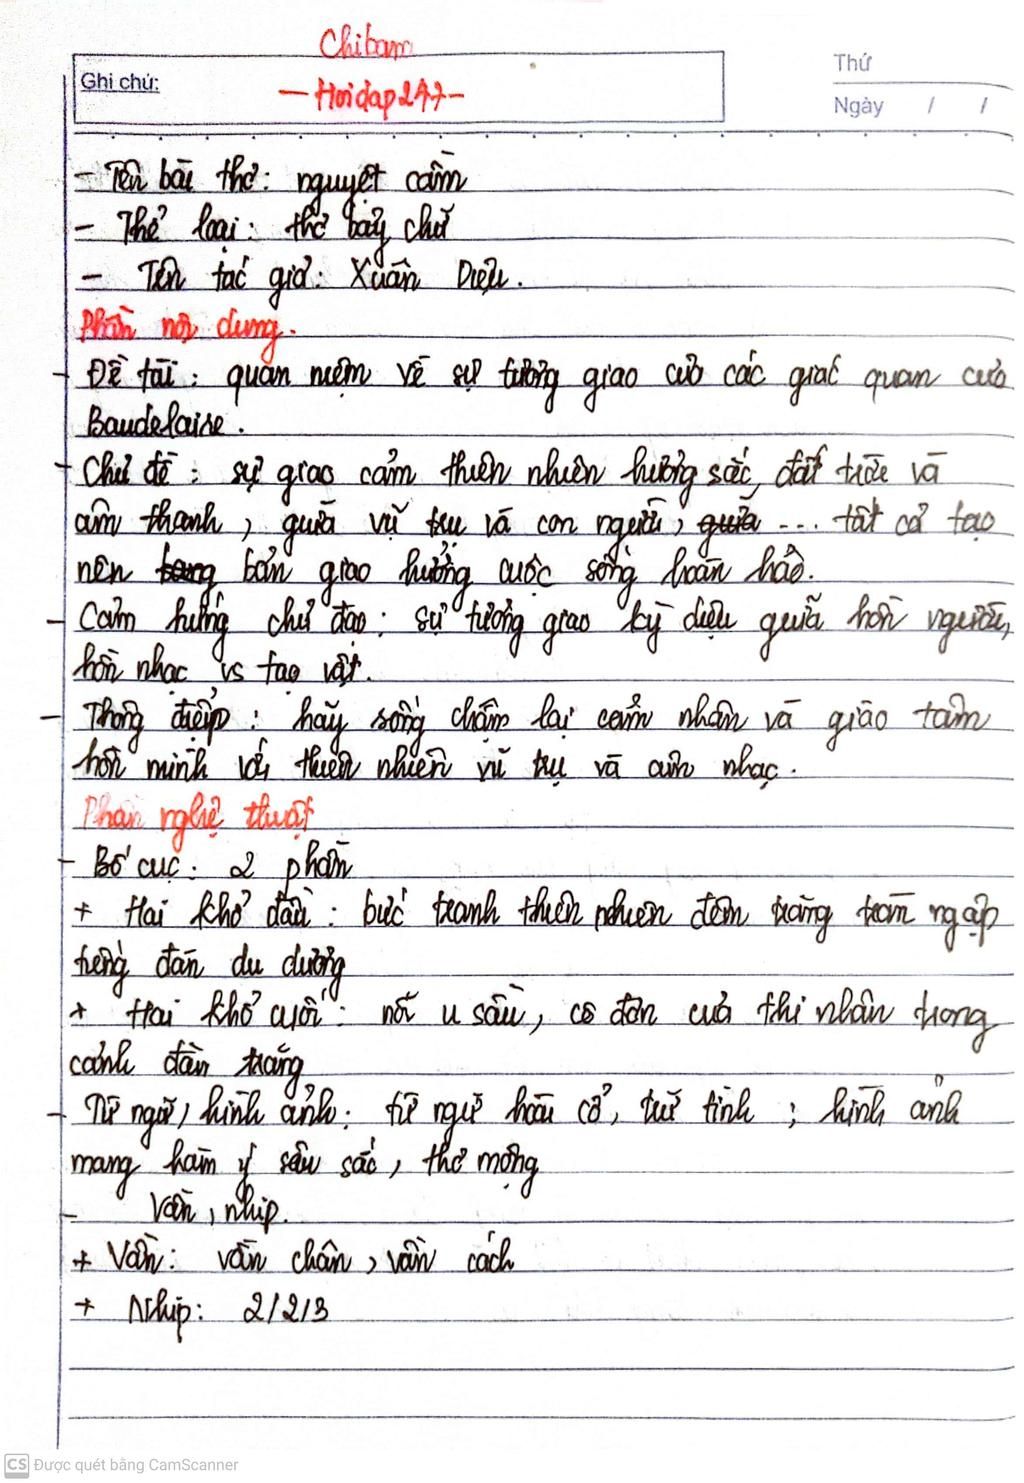 Chibam
Ghi chú:
- Hoidap247-
Thứ
Ngày / /
- Tên bài thơ: nguyệt cầm
- Thể loại: thơ bảy chữ
- Tên tác giả: Xuân Diệu.
Phần nội dung.
- Đề tài: quan niệm về sự tương giao của các giác quan của
Baudelaire.
- Chủ đề: sự giao cảm thiên nhiên hương sắc, đất trời và
âm thanh, giữa vũ trụ và con người, giữa ... tất cả tạo
nên bản giao hưởng cuộc sống hoàn hảo.
- Cảm hứng chủ đạo: sự tương giao kỳ diệu giữa hồn người,
hồn nhạc vs tạo vật.
- Thông điệp: hãy sống chậm lại cảm nhận và giao tâm
hồn mình với thiên nhiên vũ trụ và âm nhạc.
Phần nghệ thuật
- Bố cục: 2 phần
+ Hai khổ đầu: bức tranh thiên nhiên đêm trăng tràn ngập
tiếng đàn du dương
+ Hai khổ cuối: nỗi u sầu, cô đơn của thi nhân trong
cảnh đàn trăng
- Từ ngữ, hình ảnh: từ ngữ hoài cổ, trữ tình; hình ảnh
mang hàm ý sâu sắc, thơ mộng
- Vần, nhịp.
+ Vần: vần chân, vần cách
+ Nhịp: 2/2/3
CS Được quét bằng CamScanner